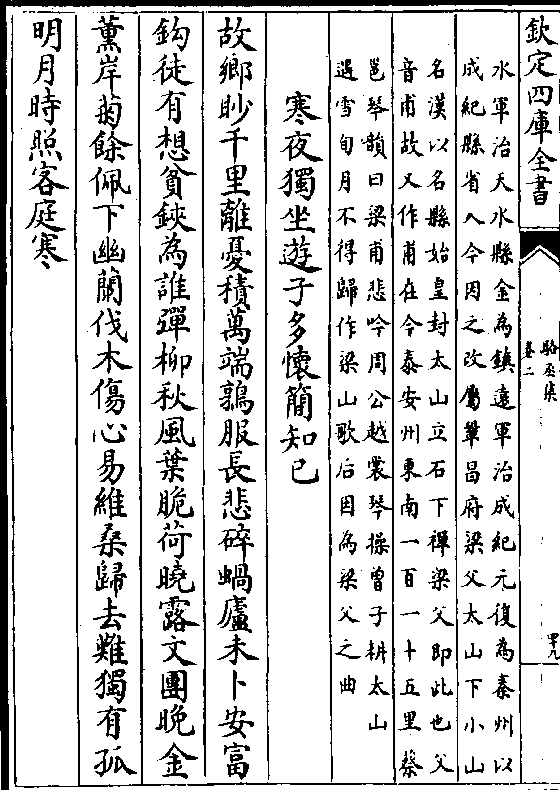 欽定四庫全書
駱丞集
卷二
四九
水軍治天水縣金為鎮遠軍治成紀元復為秦州以
成紀縣省入今因之改屬鞏昌府梁父太山下小山
名漢以名縣始皇封太山立石下禪梁父即此也父
音甫故又作甫在今泰安州東南一百一十五里蔡
邕琴韻曰梁甫悲吟周公越裳琴操曾子耕太山
遇雪旬月不得歸作梁山歌后因為梁父之曲
寒夜獨坐遊子多懷簡知己
故鄉眇千里離憂積萬端鶉服長悲碎蝸廬未卜安富
鈎徒有想貧鋏為誰彈柳秋風葉脆荷曉露文團晩金
薰岸菊餘佩下幽蘭伐木傷心易維桑歸去難獨有孤
明月時照客庭寒